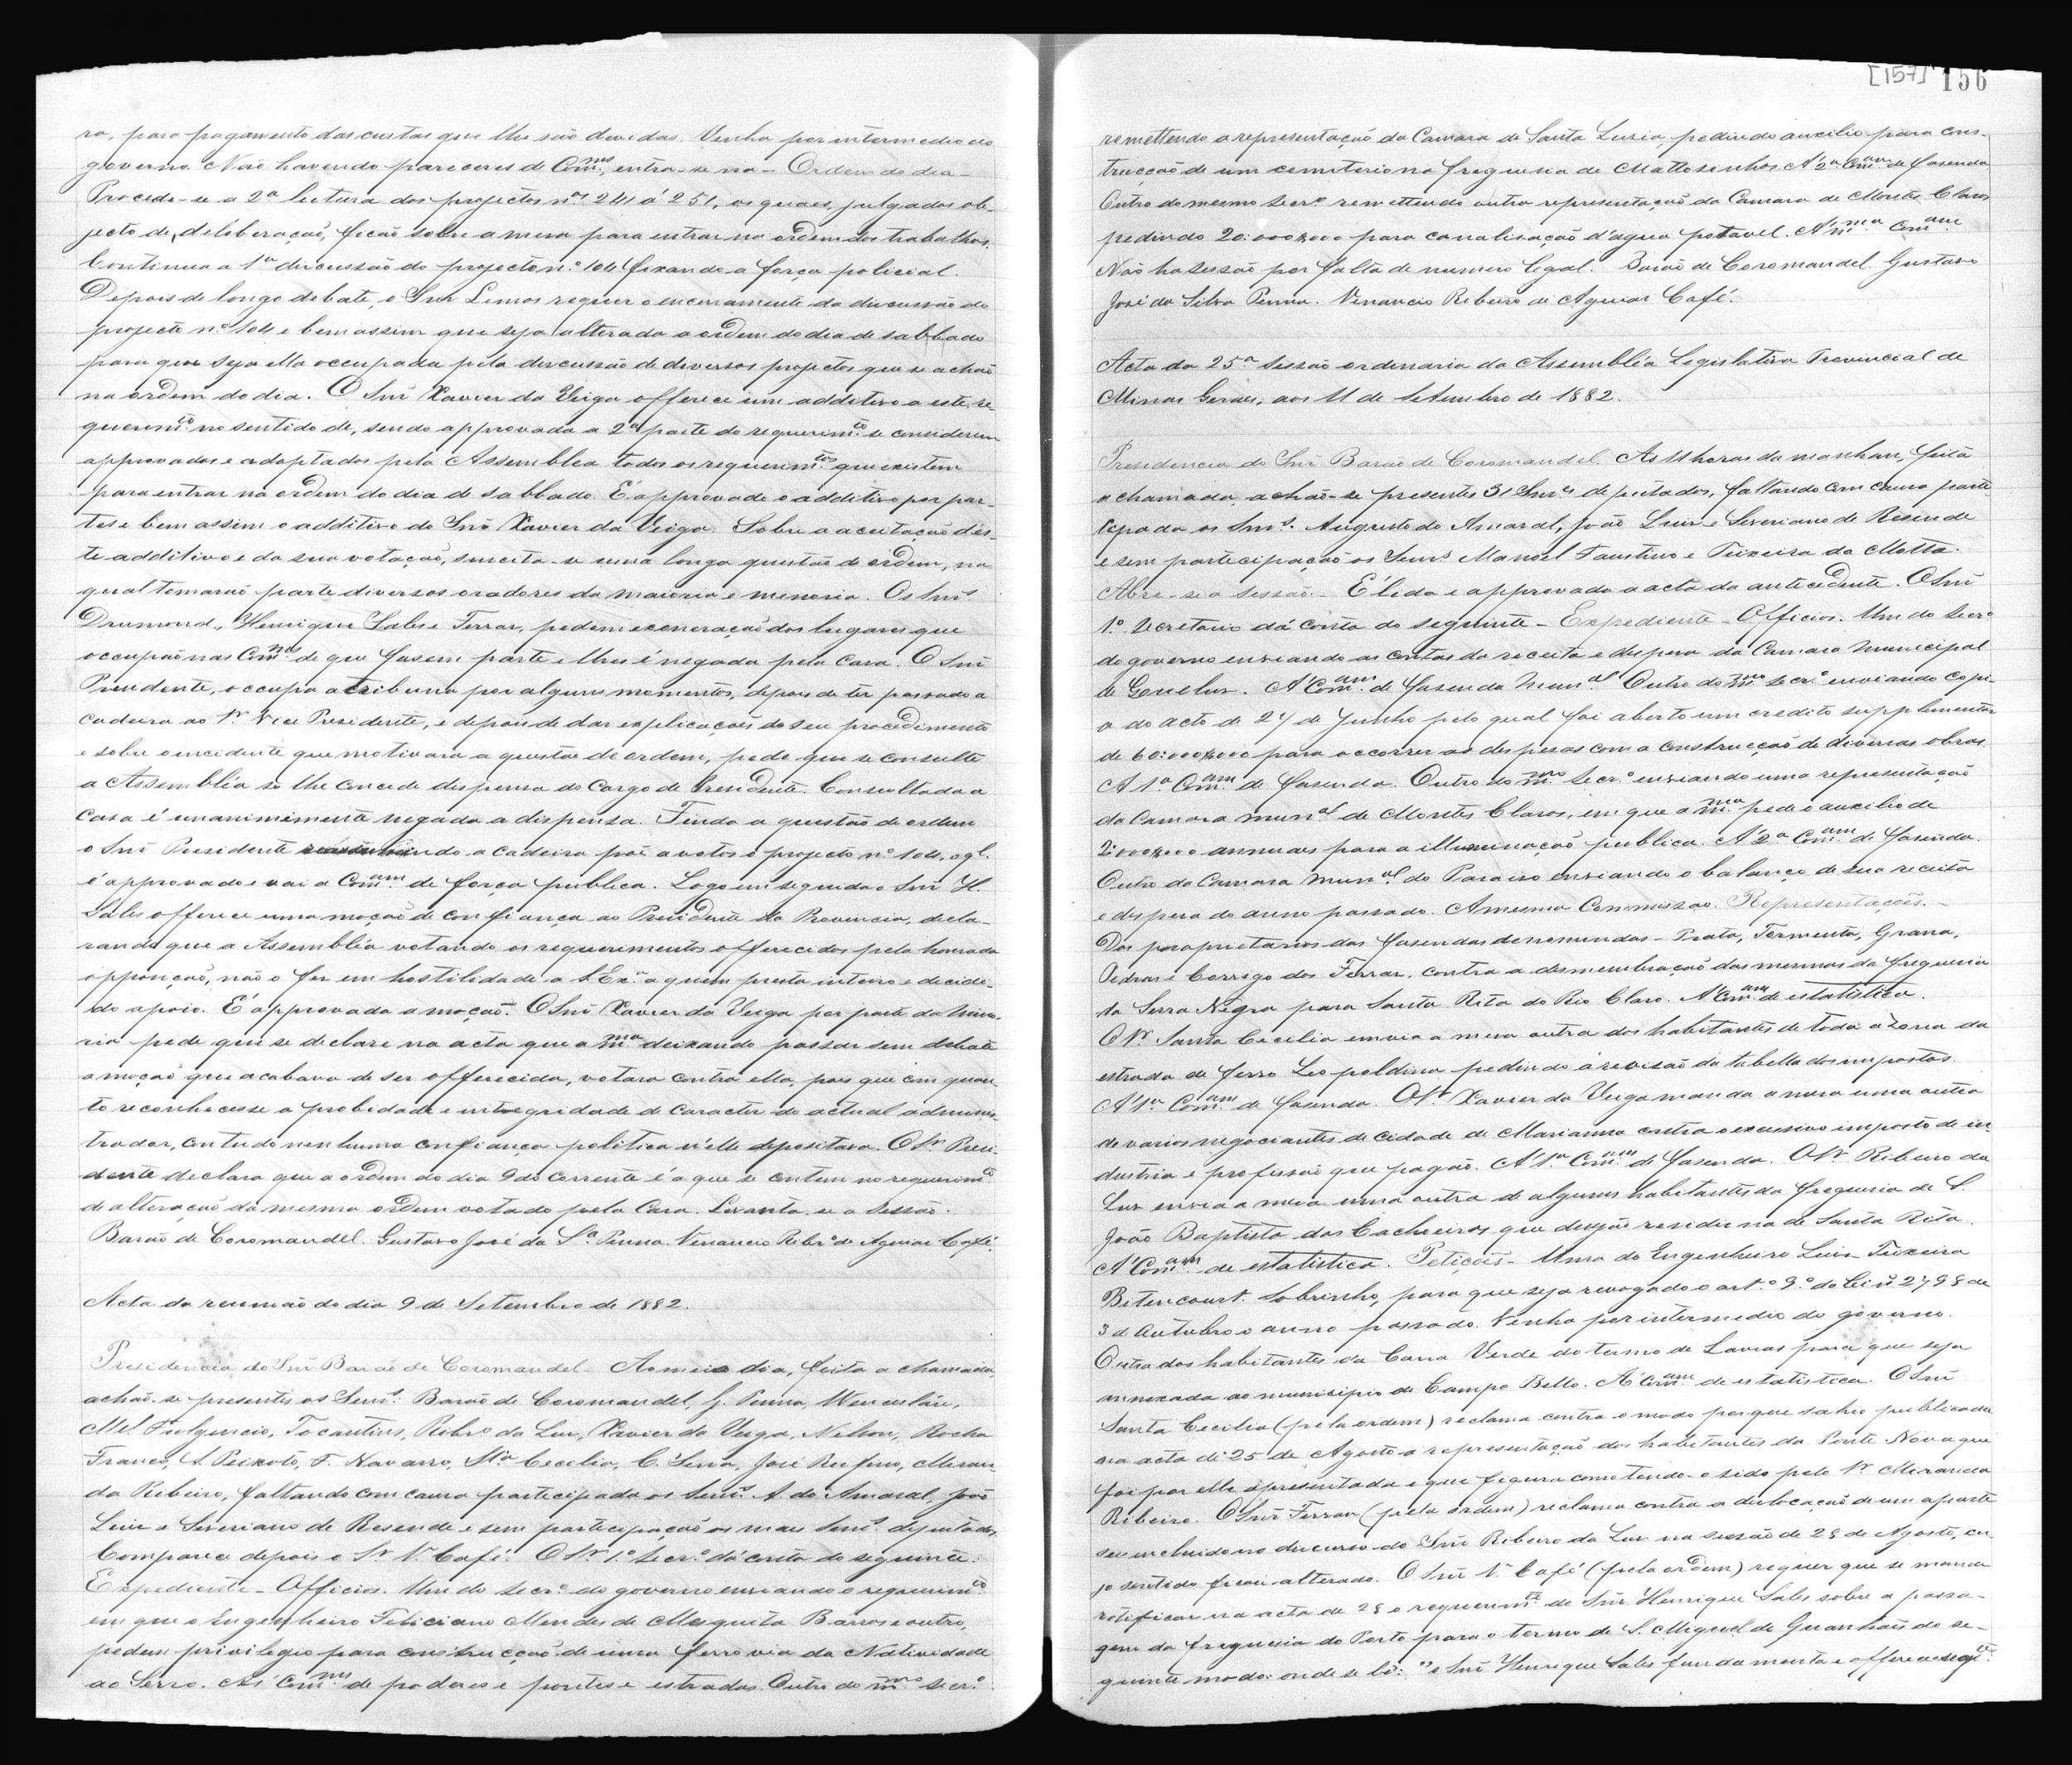 ra, para pagamento das custas que lhe são devidas. Venha por intermedio do
governo. Não havendo pareceres de Com.mes, entra-se na - Ordem do dia -
Procede-se a 2ª leitura dos projectos nos 241 á 251, os quaes, julgados ob-
jecto de deliberação, ficão sobre a mesa para entrar na ordem dos trabalhos.
Continua a 1ª discussão do projecto nº 104 fixando a força policial.
Depois de longo debate, o Snr Lemos requer o encerramento da discussão do
projecto nº 104 e bem assim que seja alterada a ordem do dia de sabbado
para que seja ella occupada pela discussão de diversos projectos que se achão
na ordem do dia. O Snr Xavier da Veiga offerece um additivo a este re-
querimto no sentido de, sendo approvada a 2ª parte do requerimto se considerem
approvados e adoptados pela Assemblea todos os requerimtos que existem
para entrar na ordem do dia de sabbado. É approvado o additivo por par-
tes e bem assim o additivo do Snr Xavier da Veiga. Sobre a aceitação des-
te additivo e da sua votação, suscita-se uma longa questão de ordem, na
qual tomarão parte diversos oradores da maioria e menoria. Os Snrs
Drumond, Henrique Sales e Ferraz, pedem exoneração dos lugares que
occupão nas Com.es de que fasem parte e lhes é negada pela Casa. O Snr
Presidente, occupa a tribuna por alguns momentos, depois de ter passado a
cadeira ao 1º Vice Presidente, e depois de dar explicações do seu procedimento
e sobre o incidente que motivara a questão de ordem, pede que se consulte
a Assembléa se lhe concede dispensa do cargo de Presidente. Consultada a
Casa é unanimimente negada a dispensa. Finda a questão de ordem
o Snr Presidente ndo a cadeira põe a votos o projecto nº 104, o ql.
é approvado e vai a Com.am de força publica. Logo em seguida o Snr H.
Sales offerece uma moção de confiança ao Presidente da Provincia, decla-
rando que a Assembléa votando os requerimentos offerecidos pela honrada
opposição, não o fez em hostilidade a S. Exª a quem presta inteiro e decidi-
do apoio. É approvada a moção. O Snr Xavier da Veiga por parte da mino-
ria pede que se declare na acta que a mma deixando passar sem debate
a moção que acabava de ser offerecida, votara contra ella, pois que em quan-
to reconhecesse a probidade e integridade de caracter do actual adminis-
trador, contudo nenhuma confiança politica n'elle depositava. O Sr Presi-
dente declara que a ordem do dia 9 do corrente é a que se contem no requerimto
de alteração da mesma ordem votado pela Casa. Levanta-se a sessão.
Barão de Coromandel. Gustavo José da Sª Penna. Venancio Ribrº de Aguiar Café.
Acta da reunião do dia 9 de Setembro de 1882.
Presidencia do Snr Barão de Coromandel. Ao meio dia, feita a chamada,
achão-se presentes os Senrs. Barão de Coromandel, G. Penna, Wenceslau,
Mel Fulgencio, Tocantins, Ribrº da Luz, Xavier da Veiga, Nelson, Rocha
Franco, S. Peixoto, F. Navarro, Sta Cecilia, C. Sena, José Rufino, Miran-
da Ribeiro, faltando com causa participada os Senrs. A. do Amaral, João
Luiz e Severiano de Resende e sem participação os mais Senrs. deputados.
Comparece depois o Sr V. Café. O Sr 1º Secrº dá conta do seguinte:
Expediente - Officios. Um do Secrº do governo enviando o requerimto
em que o Engenheiro Feliciano Mendes de Mesquita Barros e outro,
pedem privilegio para construcção de uma ferro via da Natividade
ao Serro. Ás Com.mes de poderes e pontes e estradas. Outro do mmo Secrº
[157] 156
remettendo a representação da Camara de Santa Lusia, pedindo auxilio para cons-
trucção de um cemiterio na freguesia de Mattosinhos. A 2ª Com.am de fasenda
Outro do mesmo Secrº remettendo outra representação da Camara de Montes Claros
pedindo 20:000$000 para canalisação d'agua potavel. A' mma Com.am
Não ha sessão por falta de numero legal. Barão de Coromandel. Gustavo
José da Silva Penna. Venancio Ribeiro de Aguiar Café.
Acta da 25ª sessão ordenaria da Assembléa Legislativa Provincial de
Minas Geraes, aos 11 de Setembro de 1882.
Presidencia do Snr Barão de Coromandel. As 11 horas da manhan, feita
a chamada, achão-se presentes 31 Snrs deputados, faltando com causa parti-
cipada os Snrs. Augusto do Amaral, João Luiz e Severiano de Resende
e sem participação os Senrs Manoel Faustino e Teixeira da Motta.
Abre-se a sessão. É lida e approvada a acta da antecedente. O Snr
1º Secretario dá conta do seguinte - Expediente - Officios. Um do Secrº
do governo enviando as contas da receita e despesa da Camara Municipal
de Queluz. A' Com.am de fasenda Mun.al Outro do mmo Secrº enviando copi-
a do acto de 27 de Junho pelo qual foi aberto um credito supplementar
de 60:000$000 para occorrer as despesas com a construcção de diversas obras.
A 1ª Com.am de fasenda. Outro do mmo Secrº enviando uma representação
da Camara mun.al de Montes Claros, em que a mma pede o auxilio de
2:000$000 annuaes para a illuminação publica. A' 2ª Com.am de fasenda.
Outro da Camara Mun.al do Paraiso enviando o balanço de sua receita
e despesa do anno passado. A mesma Commissão. Representações. -
Dos poroprietarios das fasendas denominadas - Prata, Tormenta, Grama,
Pedras e Corrego dos Ferraz, contra a desmembração das mesmas da freguesia
da Serra Negra para Santa Rita do Rio Claro. A' Com.am de estatistica.
O Sr Santa Cecilia envia a mesa outra dos habitantes de toda a zona da
estrada de ferro Leopoldina pedindo a revisão da tabella dos impostos.
A' 1ª Com.am de fasenda. O Sr Xavier da Veiga manda a mesa uma outra
de varios negociantes da cidade de Marianna contra o excessivo imposto de in-
dustria e profissão que pagão. A 1ª Com.am de fasenda. O Sr Ribeiro da
Luz envia a mesa uma outra de alguns habitantes da freguesia de S.
João Baptista das Cachoeiras que desejão residir na de Santa Rita.
A' Com.am de estatistica. Petições - Uma do Engenheiro Luiz Teixeira
Bitencourt Sobrinho, para que seja revogado o artº 9º da lei nº 2798 de
3 de Outubro o anno passado. Venha por intermedio do governo.
Outra dos habitantes da Cana Verde do termo de Lavras para que seja
annexada ao municipio de Campo Bello. A' Com.am de estatistica. O Snr
Santa Cecilia (pela ordem) reclama contra o modo porque sahio publicada
na acta de 25 de Agosto a representação dos habitantes da Ponte Nova que
foi por elle apresentada e que figura como tendo-o sido pelo Sr Miranda
Ribeiro. O Snr Ferraz (pela ordem) reclama contra a deslocação de um aparte
seu incluido no discurso do Snr Ribeiro da Luz na sessão de 28 de Agosto, cu-
jo sentido ficou alterado. O Snr V. Café (pela ordem) requer que se mande
retificar na acta de 28 o requerimto do Snr Henrique Sales sobre a passa-
gem da freguesia do Porto para o termo de S. Miguel de Guanhães do se-
guinte modo: onde se lê: "o Snr Henrique Sales fundamenta e offerece o segte